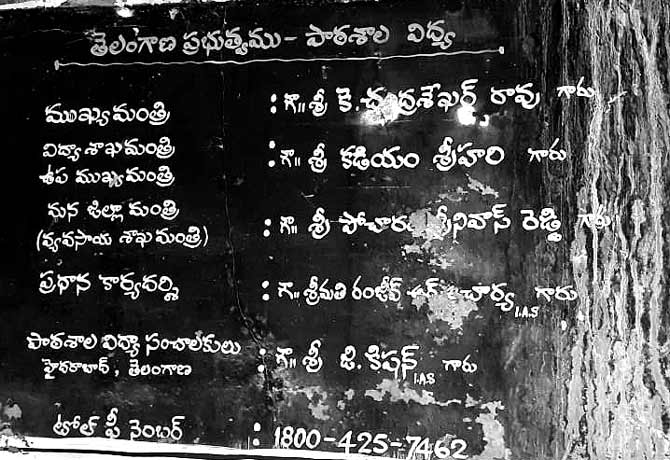 తెలంగాణ ప్రభుత్వము - పాఠశాల విద్య
ముఖ్యమంత్రి : గౌ॥ శ్రీ కె. చంద్రశేఖర్ రావు గారు
విద్యాశాఖమంత్రి
ఉప ముఖ్యమంత్రి : గౌ॥ శ్రీ కడియం శ్రీహరి గారు
మన జిల్లా మంత్రి
(వ్యవసాయ శాఖ మంత్రి) : గౌ॥ శ్రీ పోచారం శ్రీనివాస్ రెడ్డి గారు
ప్రధాన కార్యదర్శి : గౌ॥ శ్రీమతి రంజీవ్ ఆచార్య I.A.S గారు
పాఠశాల విద్యా సంచాలకులు
హైదరాబాద్, తెలంగాణ : గౌ॥ శ్రీ జి. కిషన్ I.A.S గారు
టోల్ ఫ్రీ నెంబర్ : 1800-425-7462